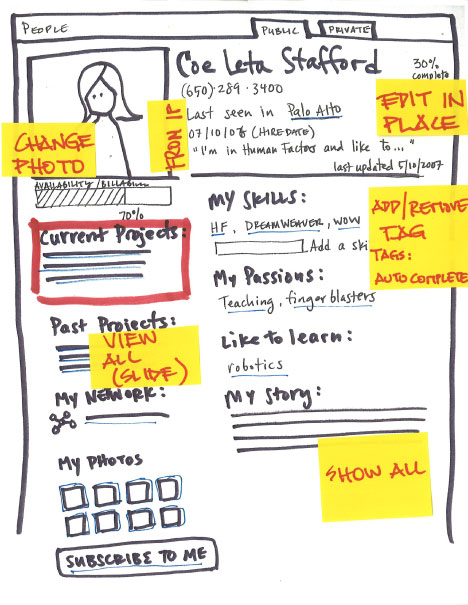 PEOPLE
PUBLIC
PRIVATE
Coe Leta Stafford
30%
complete
(650)·289·3400
Last seen in Palo Alto
07/10/06 (HIRE DATE)
"I'm in Human Factors and like to..."
last updated 5/10/2007
EDIT IN
PLACE
FROM IP
CHANGE
PHOTO
AVAILABILITY/BILLABILITY
70%
Current Projects:
Past Projects:
VIEW
ALL
(SLIDE)
My NETWORK:
My PHOTOS
SUBSCRIBE TO ME
My SKILLS:
HF, DREAMWEAVER, WOW
Add a ski
ADD/REMOVE
TAG
TAGS:
AUTO COMPLETE
My Passions:
Teaching, finger blasters
Like to learn:
robotics
My Story:
SHOW ALL